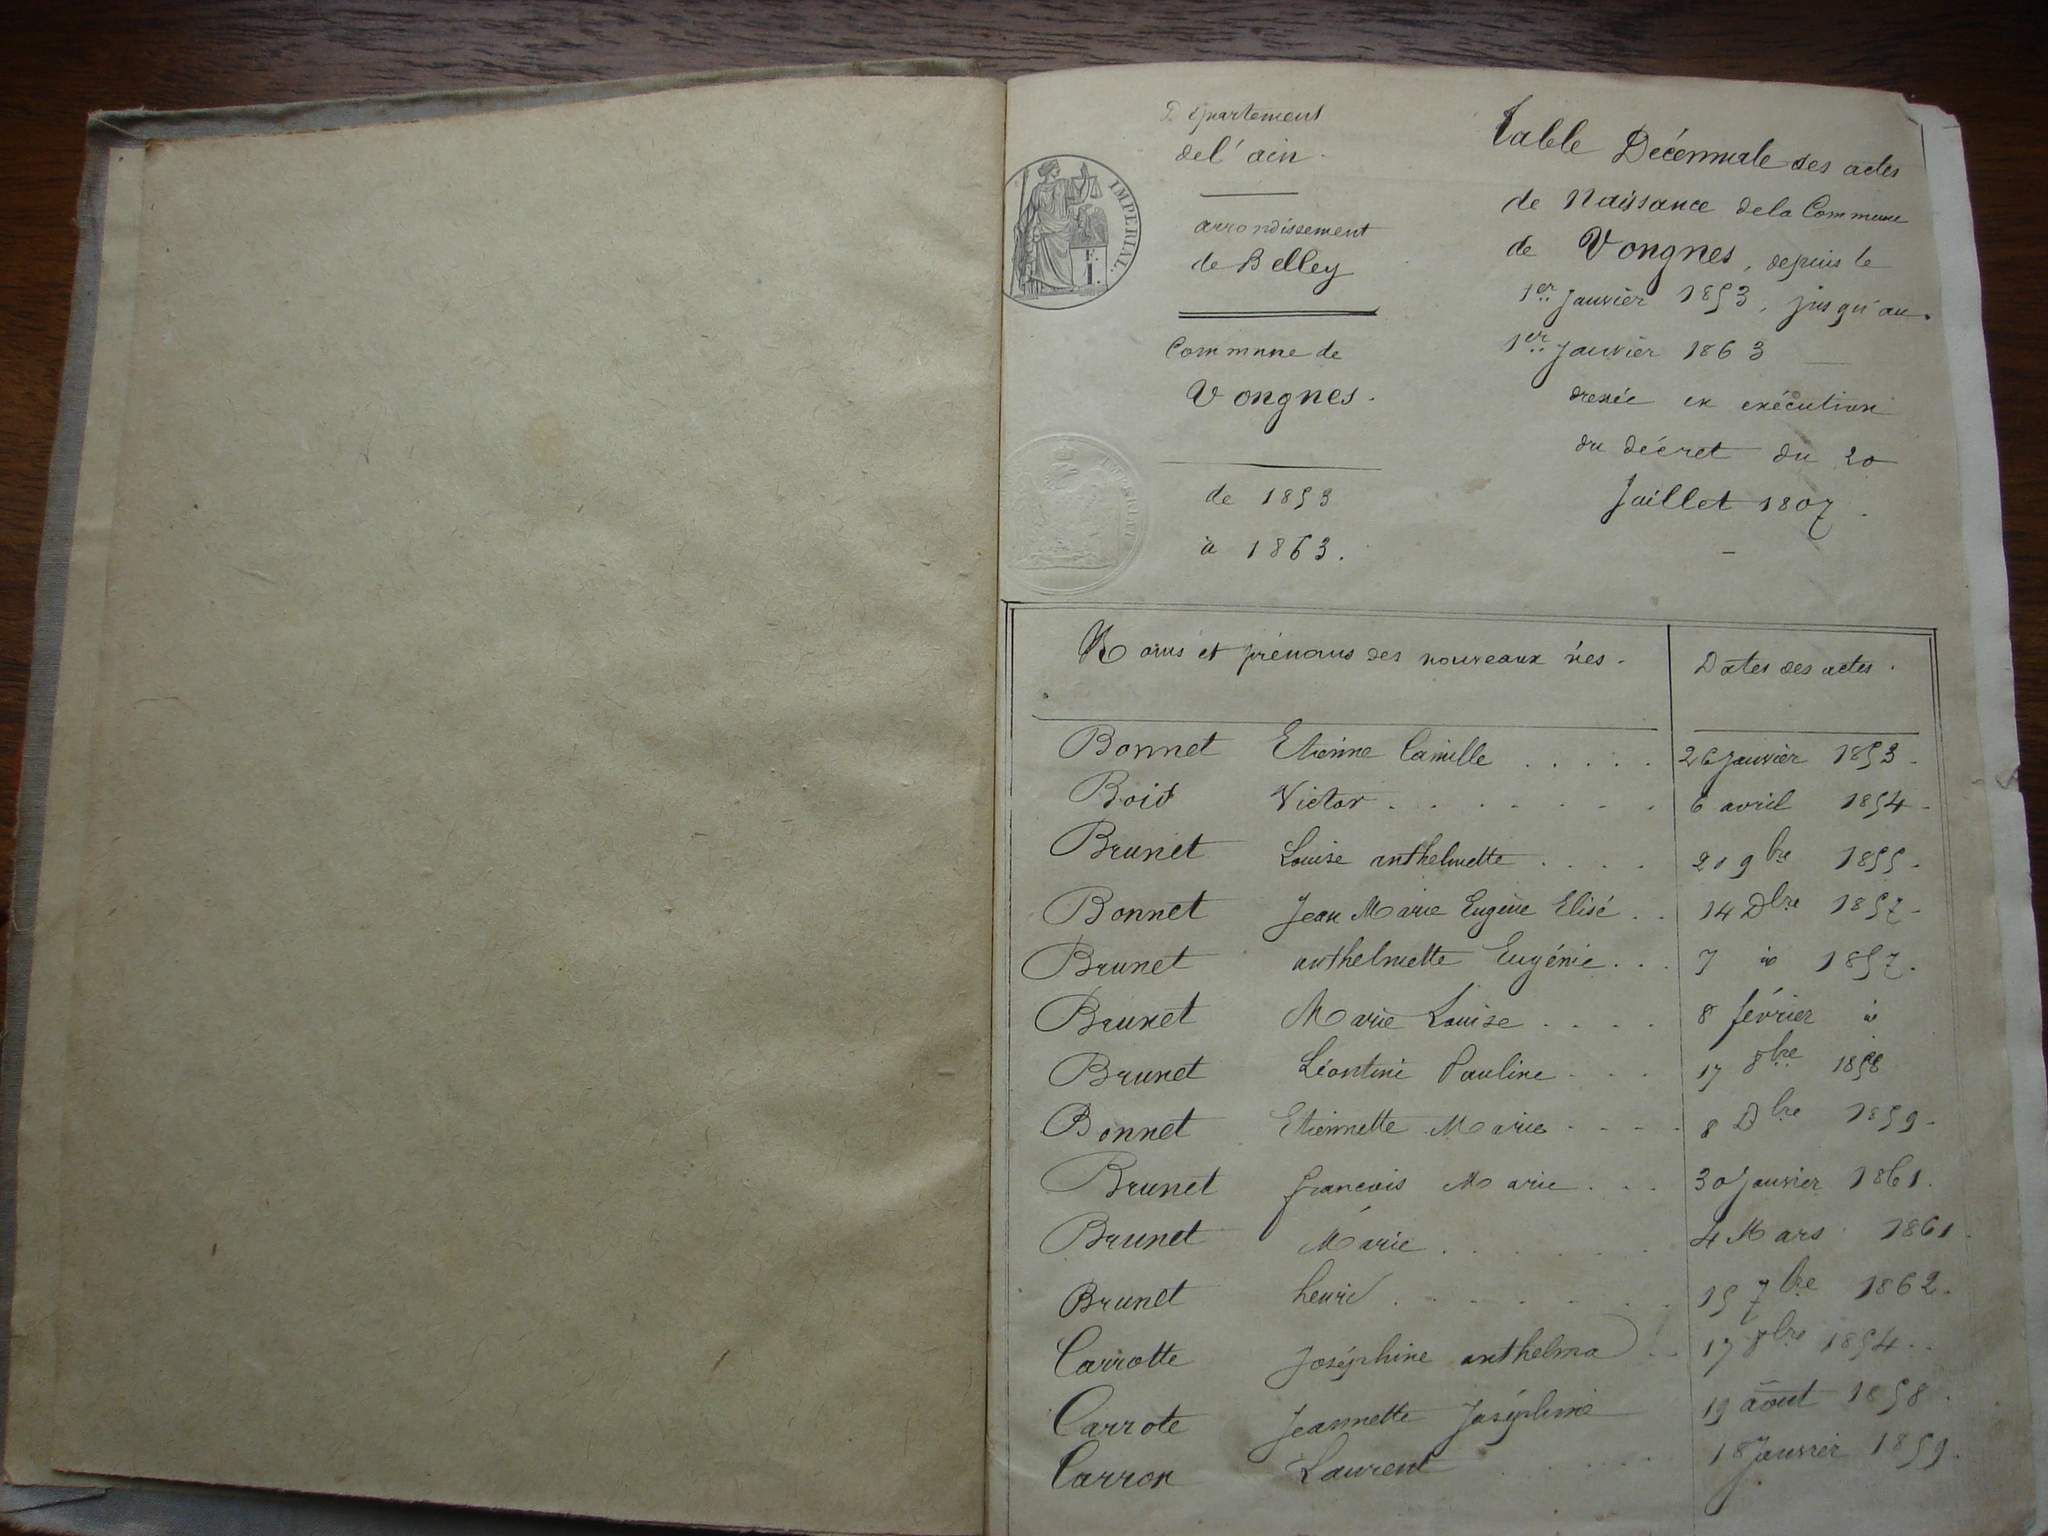 Département
de l'ain.
arrondissement
de Belley
Commune de
Vongnes.
de 1853
à 1863.
IMPERIAL.
E.
I.
Table Décennale des actes
de Naissance de la Commune
de Vongnes, depuis le
1er Janvier 1853, jusqu'au
1er Janvier 1863
dressée en exécution
du décret du 20
Juillet 1807.
Noms et prénoms des nouveaux nés. Dates des actes.
Bonnet Etienne Camille . . . . . 26 Janvier 1853
Bois Victor . . . . . . . 6 avril 1854
Brunet Louise anthelmette . . . . 21 9bre 1855
Bonnet Jean Marie Eugène Elisé . . 14 Dbre 1857
Brunet anthelmette Eugénie . . . 7 id 1857.
Brunet Marie Louise . . . . 8 février id
Brunet Léontine Pauline . . . 17 8bre 1858
Bonnet Etiennette Marie . . . . 8 Dbre 1859
Brunet francois Marie . . . 30 Janvier 1861.
Brunet Marie . . . . . . 4 Mars 1861.
Brunet henri . . . . . . . 15 7bre 1862.
Carrotte Joséphine anthelma . . 17 8bre 1854 . .
Carrote Jeannette Joséphine 19 aout 1858.
Carron Laurent . . . . . 18 Janvier 1859.